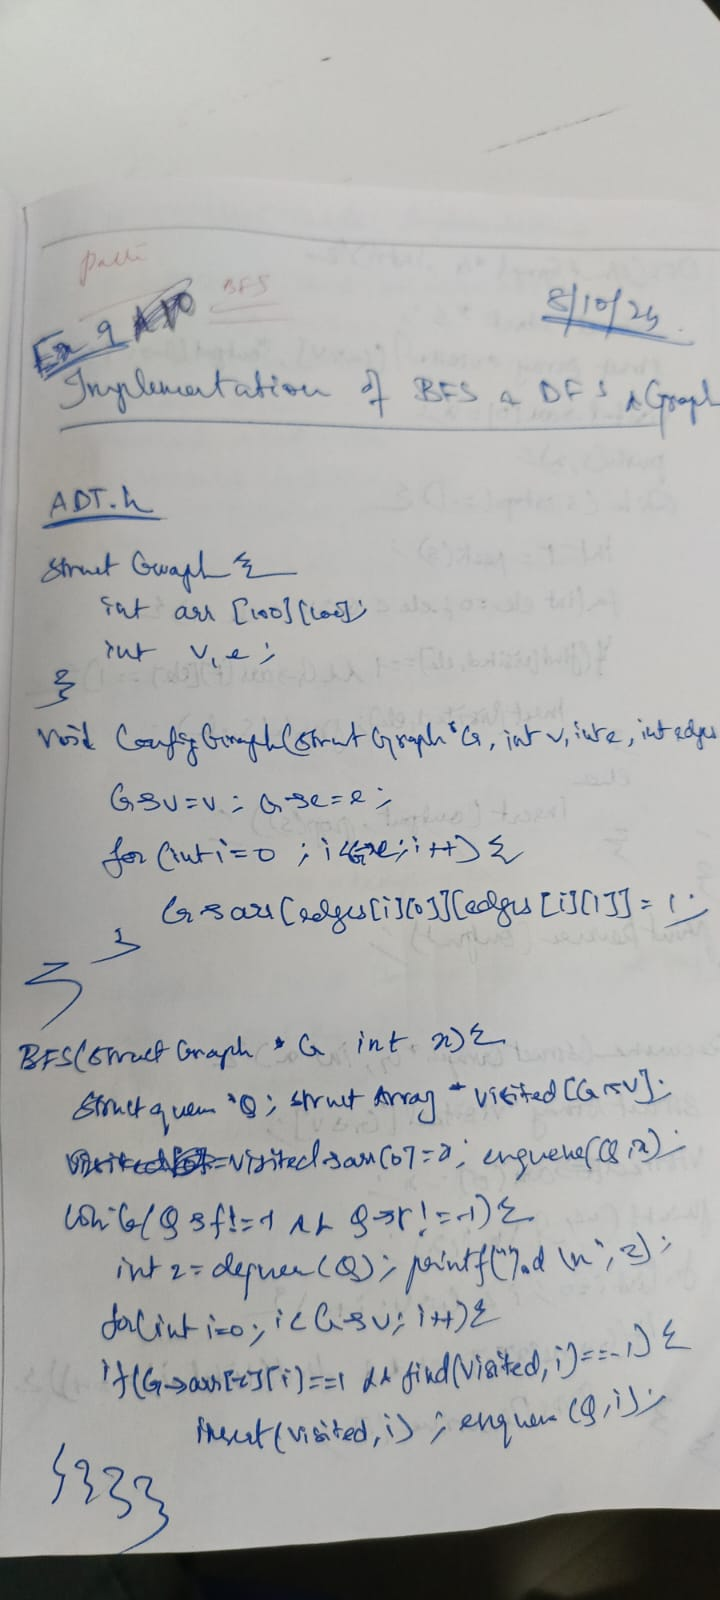 BFS
8/10/24
Ex 9
Implementation of BFS & DFS Graph
ADT.h
struct Graph {
int arr [100][100];
int v, e;
}
void ConfigGraph(struct Graph *G, int v, int e, int edges
G->v=v; G->e=e;
for (int i=0; i<G->e; i++) {
G->arr[edges[i][0]][edges[i][1]] = 1;
}
}
BFS(struct Graph * G int x) {
struct queue *Q; struct Array * visited [G->v];
visited->arr[0]=x; enqueue(Q,x);
while(Q->f!=-1 && Q->r!=-1) {
int z = dequeue(Q); printf("%d \n", z);
for(int i=0; i<G->v; i++) {
if(G->arr[z][i]==1 && find(visited, i)==-1) {
insert(visited, i); enqueue(Q,i);
}}}}